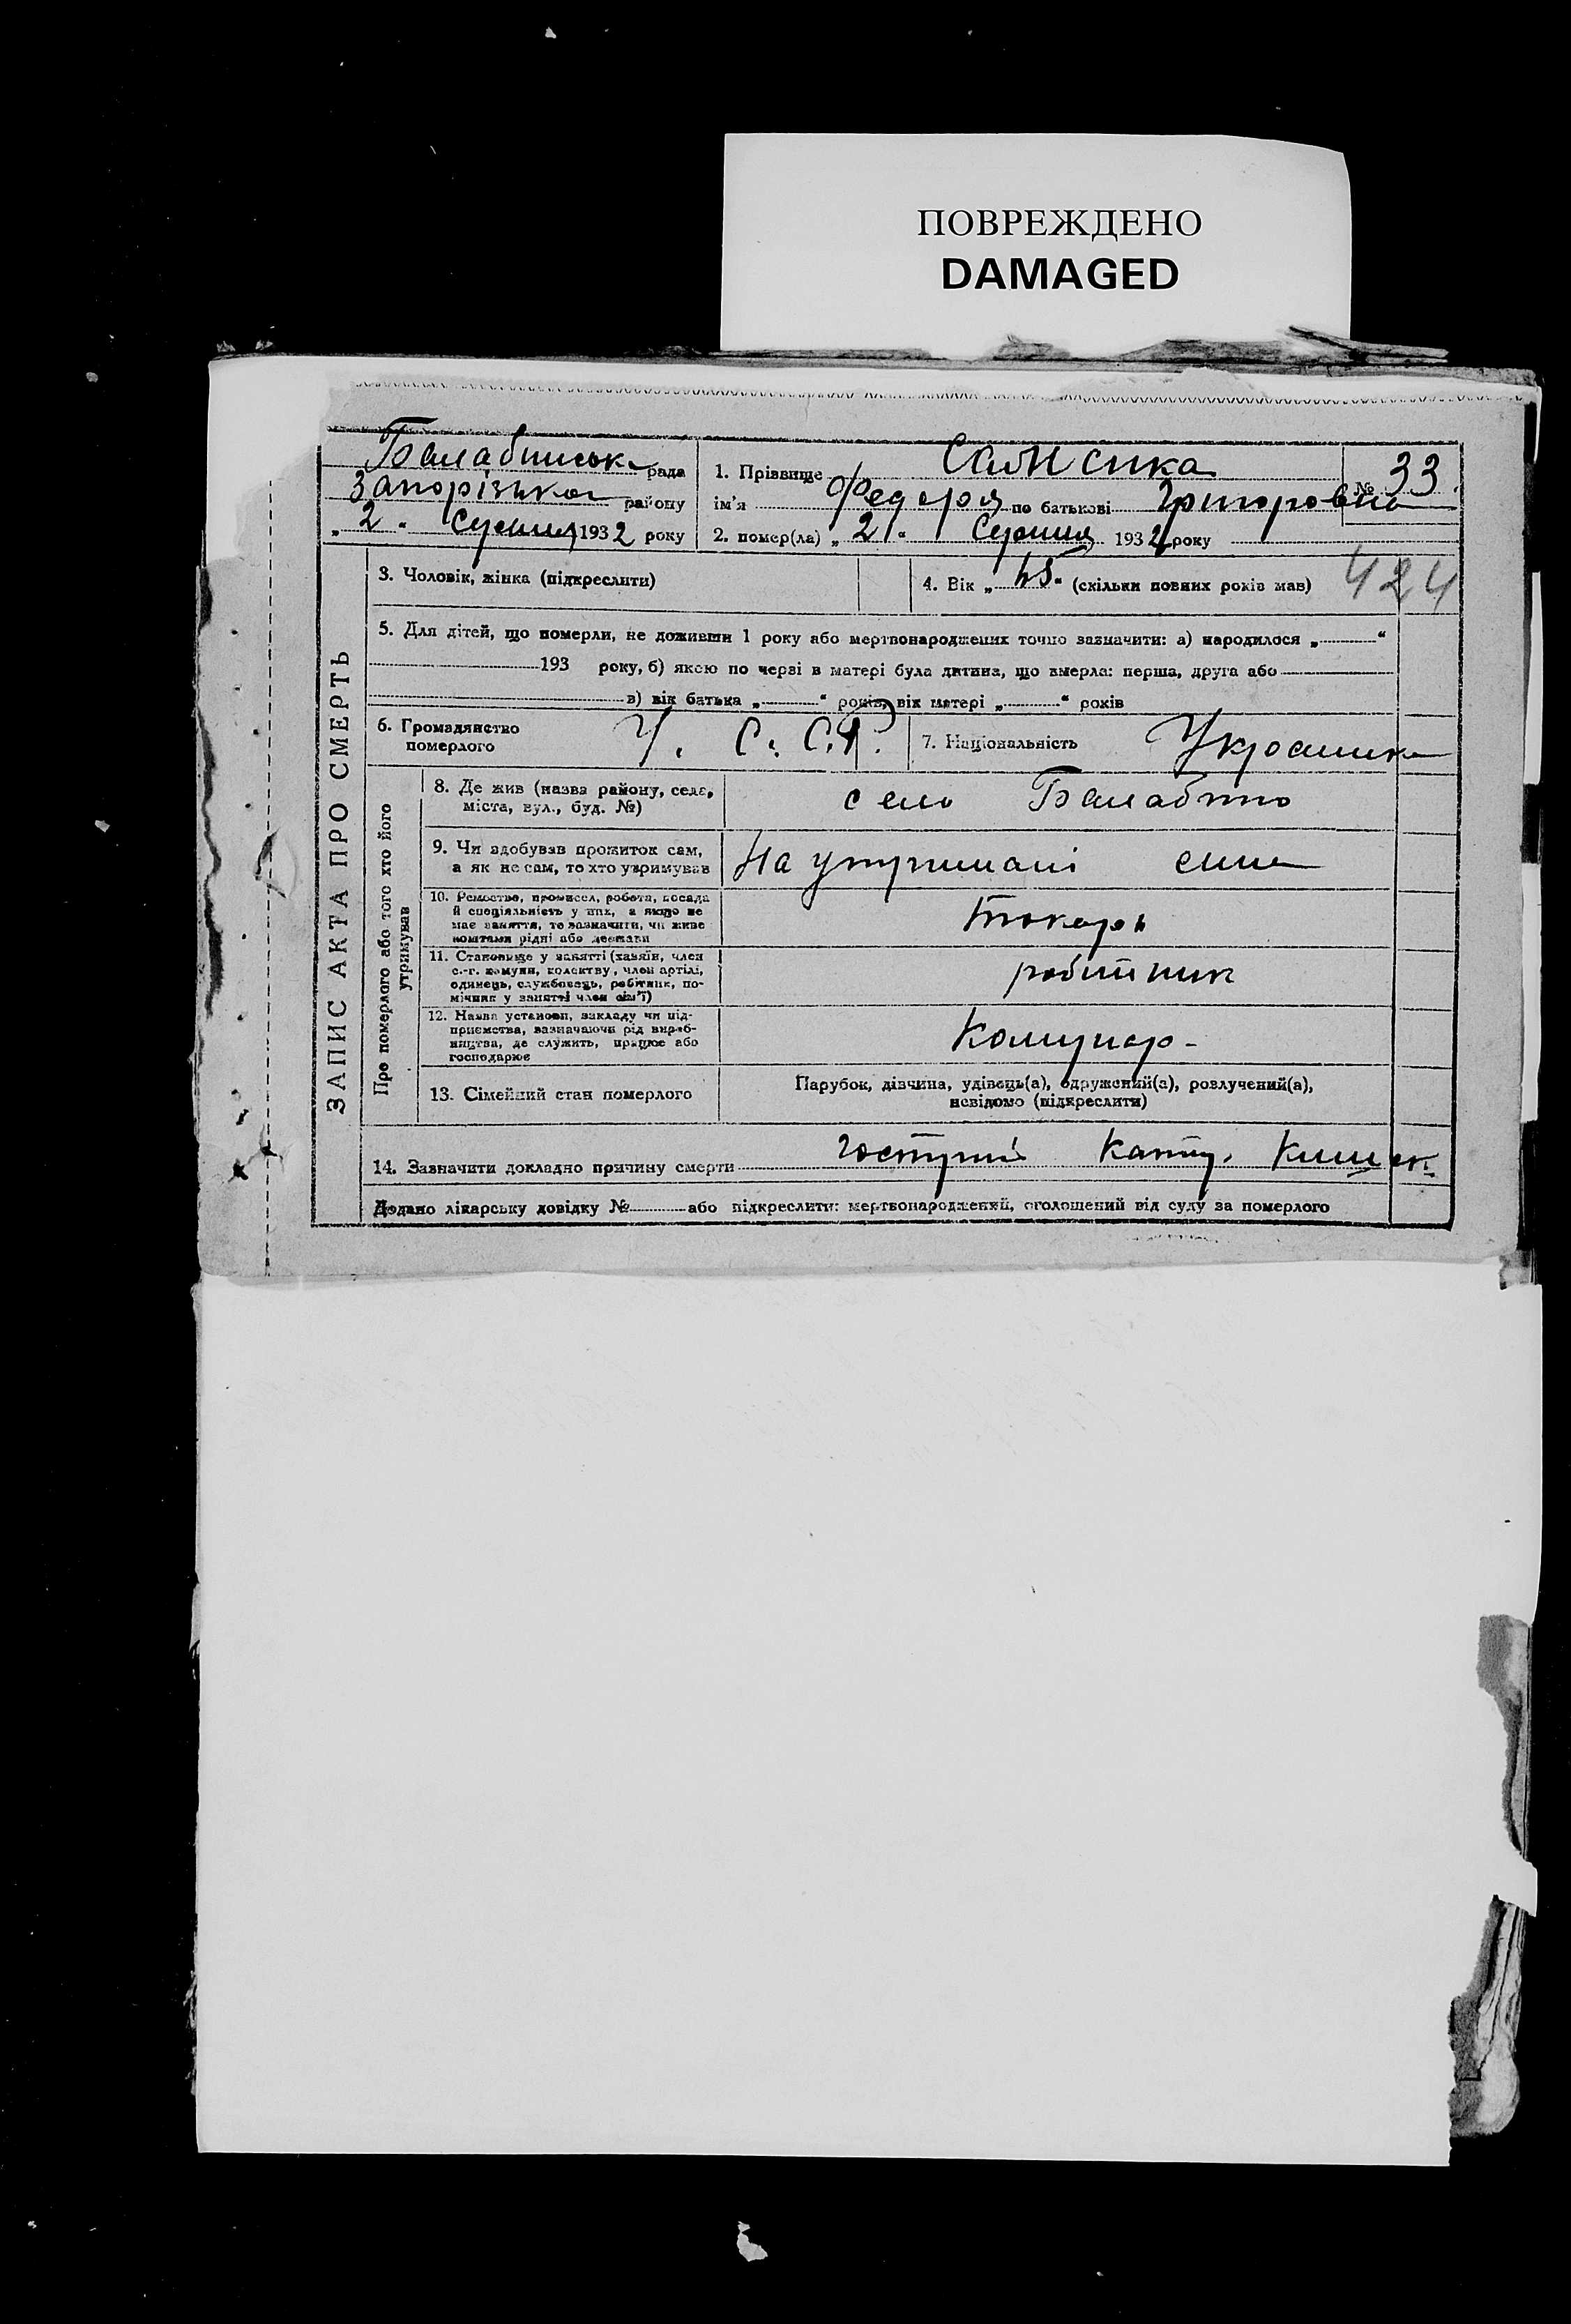 ПОВРЕЖДЕНО
DAMAGED
Балабинська рада
Запорізька району
„ 2 " Серпня 1932 року
1. Прізвище
№ 33
ім'я Федора по батькові Григоровна
2. помер(ла) „ 2 " Серпня 1932 року
ЗАПИС АКТА ПРО СМЕРТЬ
3. Чоловік, жінка (підкреслити)
4. Вік „ " (скільки повних років мав)
424
5. Для дітей, що померли, не доживши 1 року або мертвонароджених точно зазначити: а) народилося „ "
193 року, б) якою по черзі в матері була дитина, що вмерла: перша, друга або
в) вік батька „ " років, вік матері „ " років
6. Громадянство
померлого
У. С. С. Р.
7. Національність Украинка
Про померлого або того хто його
утримував
8. Де жив (назва району, села,
міста, вул., буд. №)
село Балабино
9. Чи здобував прожиток сам,
а як не сам, то хто утримував
На утримані сина
10. Ремество, промисел, робота, посада
й спеціяльність у них, а якщо не
має заняття, то зазначити, чи живе
коштами рідні або держави
Токарь
11. Становище у занятті (хазяїн, член
с.-г. комуни, колектву, член артілі,
одинець, службовець, робітник, по-
мічник у занятті член сім'ї)
робитник
12. Назва установи, закладу чи під-
приємства, зазначаючи рід вироб-
ництва, де служить, працює або
господарює
Комунар-
13. Сімейний стан померлого
Парубок, дівчина, удівець(а), одружений(а), розлучений(а),
невідомо (підкреслити)
14. Зазначити докладно причину смерти гострий Кишек
Додано лікарську довідку № або підкреслити: мертвонароджений, оголошений від суду за померлого